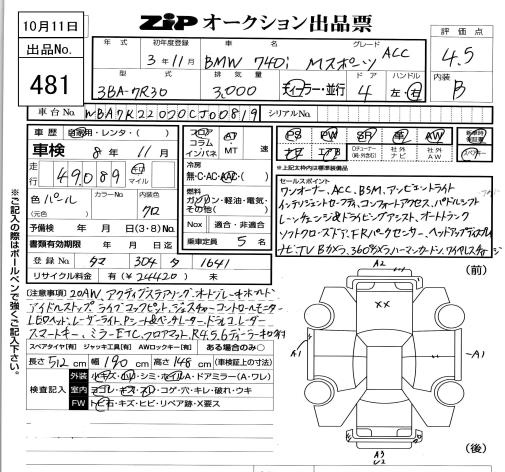 10月11日
ZIPオークション出品票
出品No.
481
評価点
4.5
内装
B
年式 初年度登録 車名 グレード
3年11月 BMW 740i Mスポーツ ACC
型式 排気量 ドア ハンドル
3BA-7R30 3,000 ディーラー・並行 4 左・右
車台No. WBA7K22020CJ00819 シリアルNo.
車歴 自家用・レンタ・( )
車検 8年11月
走行 49089 キロ マイル
フロア コラム インパネ
AT MT 速
冷房
無・C・AC・AAC・( )
燃料
ガソリン・軽油・電気・その他( )
Nox 適合・非適合
乗車定員 5名
色 パール カラーNo. 内装色
(元色) クロ
予備検 年 月 日(3・8)No.
書類有効期限 年 月 日
登録No. タマ 304 タ 1641
リサイクル料金 有(24420) 未
PS PW SR 革 AW
ナビ エアB Dチューナー(純・外含む) 社外ナビ 社外AW
新車時保証書
スペアキー
*上記太枠内は標準装備品
セールスポイント
ワンオーナー、ACC、BSM、アンビエントライト
インテリジェントセーフティ、コンフォートアクセス、パドルシフト
レーンチェンジ&ドライビングアシスト、オートトランク
ソフトクローズドア、F.Rパークセンサー、ヘッドアップディスプレイ
ナビ、TV Bカメラ、360°カメラ、ハーマンカードン、ワイヤレスチャージ
【注意事項】20AW、アクティブステアリング、オートブレーキホールド
アイドルストップ、ライブコックピット、ジェスチャーコントロール、モニター
LEDヘッド、レーザーライト、Pシート&ベンチレーター、ドラレコ、レーダー
スマートキー、ミラーETC、フロアマット、R4.5.6ディーラー車検
スペアタイヤ[有] ジャッキ工具[有] AWロックキー[有] ある場合〇のみ
長さ512cm 幅190cm 高さ148cm (車検証上の寸法)
検査記入
外装 キズ・凹・シミ・ホイル・A・ドアミラー(A・ワレ)
室内 ヨゴレ・キズ・スレ・コゲ・穴・キレ・破れ・ウキ
FW トビ石・キズ・ヒビ・リペア跡・X要ス
※ご記入の際はボールペンで強くご記入下さい。
(前)
A2
××
A1
A1
A3
U2
(後)